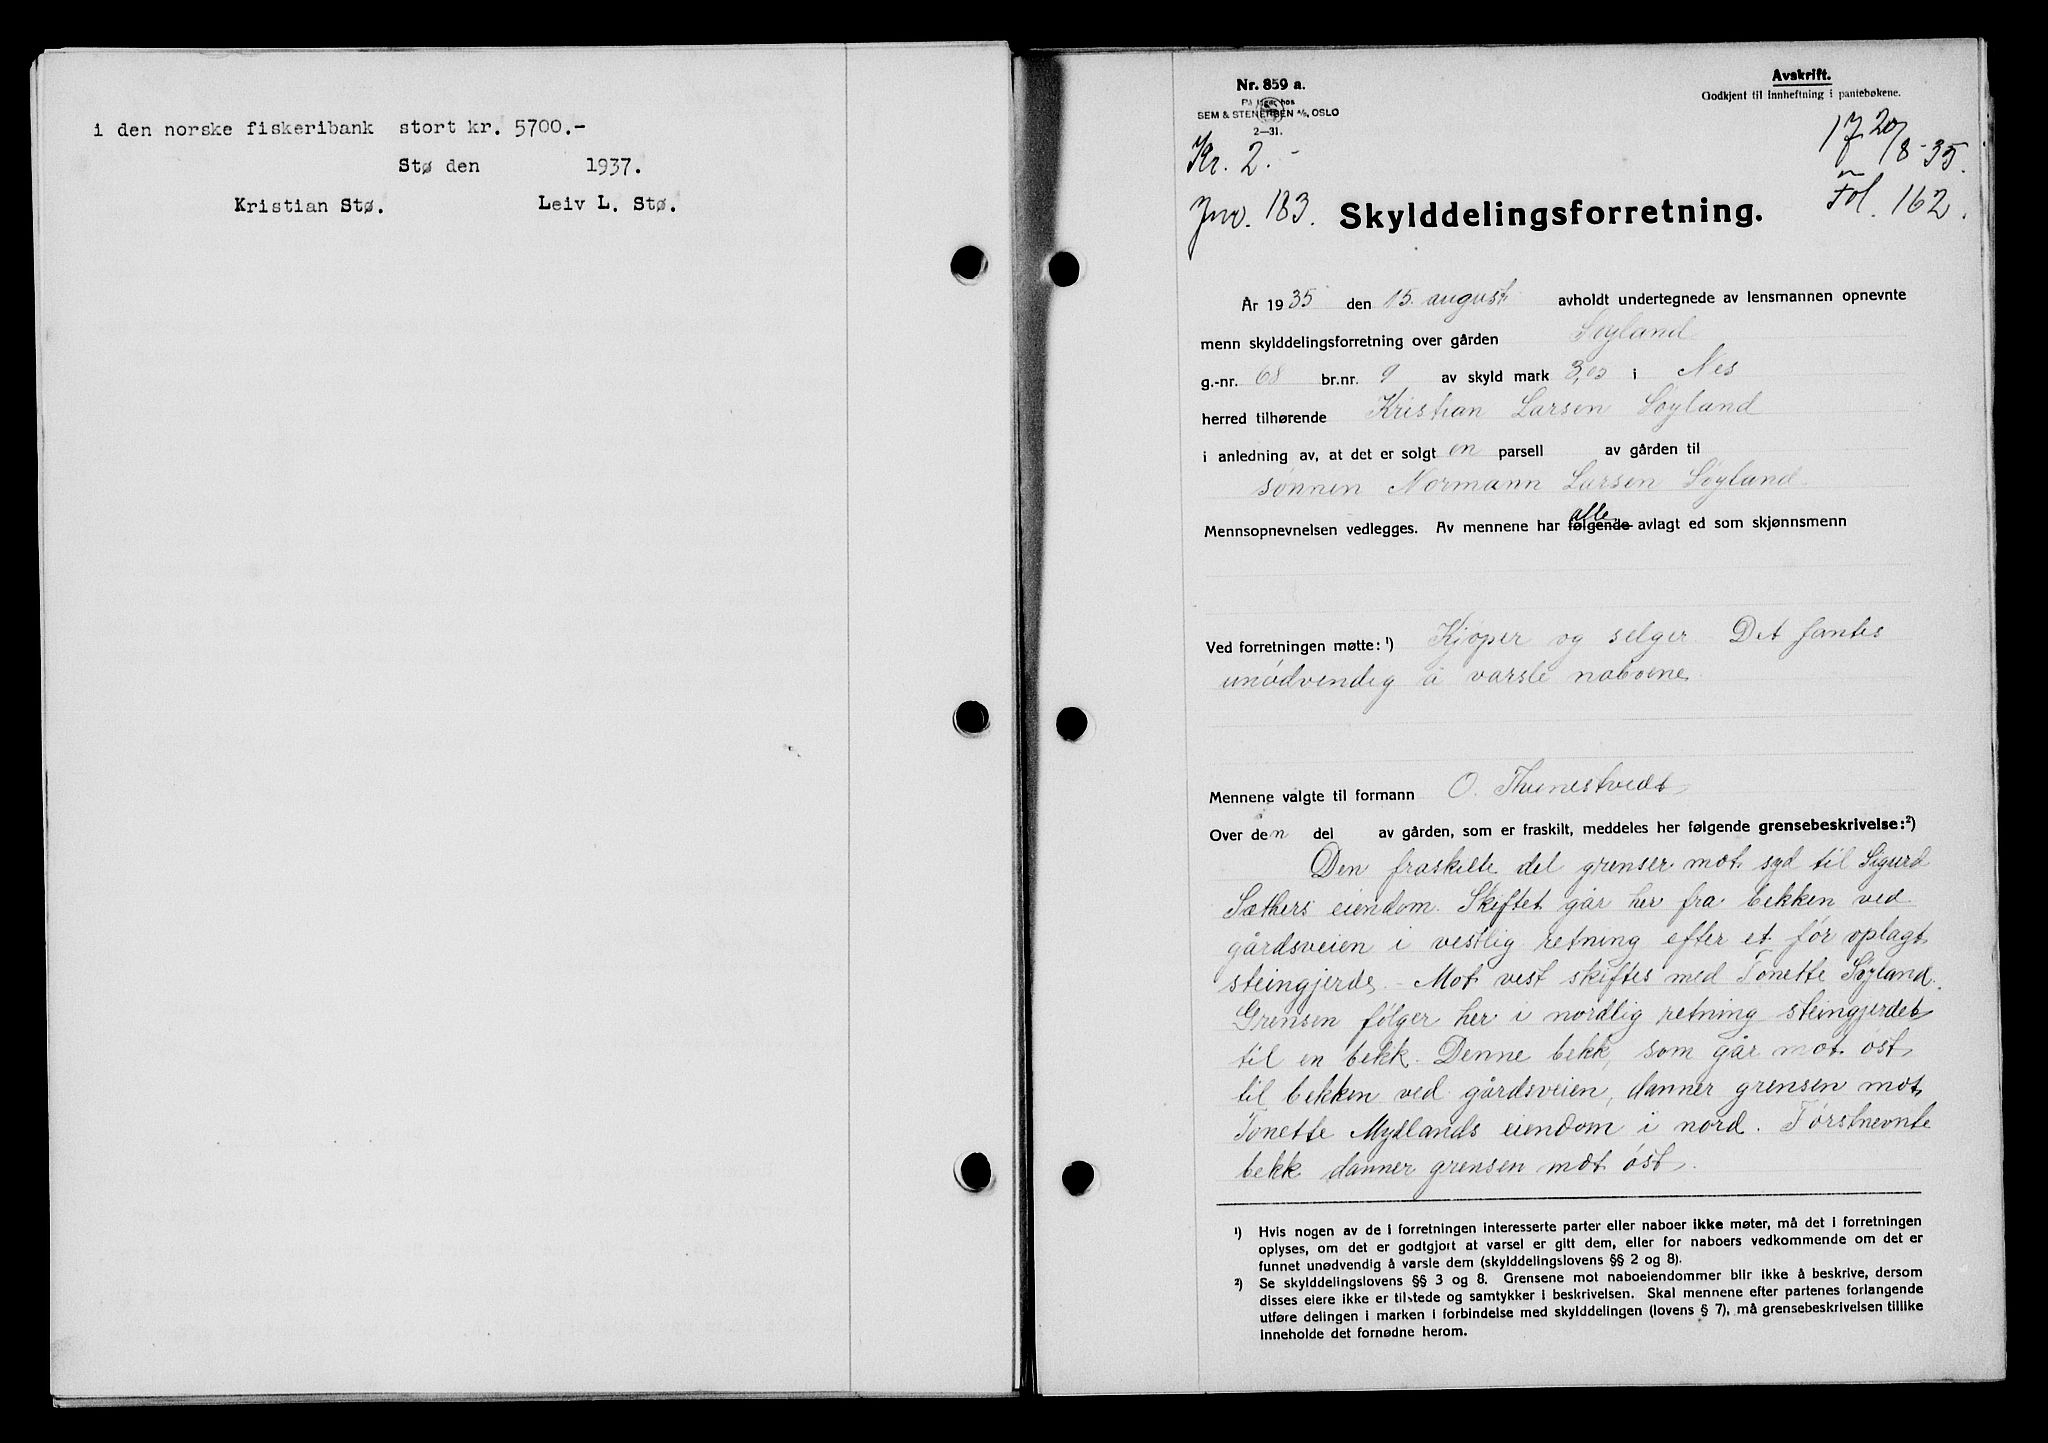 i den norske fiskeribank stort kr. 5700.-
Stø den 1937.
Kristian Stø. Leiv L. Stø.
Nr. 859 a.
På lager hos
SEM & STENERSEN A/S, OSLO
2—31.
Avskrift.
Godkjent til innheftning i pantebøkene.
Kr. 2.-
20/8-35.
Jnr. 183.
Fol. 162.
Skylddelingsforretning.
År 1935 den 15. august avholdt undertegnede av lensmannen opnevnte
menn skylddelingsforretning over gården Søyland
g.-nr. 68 br.nr. 9 av skyld mark 3,03 i Nes
herred tilhørende Kristian Larsen Søyland
i anledning av, at det er solgt en parsell av gården til
sønnen Normann Larsen Søyland
Mennsopnevnelsen vedlegges. Av mennene har følgende alle avlagt ed som skjønnsmenn
Ved forretningen møtte: ¹) Kjøper og selger. Det fantes
unødvendig å varsle naboene
Mennene valgte til formann O. Thunestvedt
Over den del av gården, som er fraskilt, meddeles her følgende grensebeskrivelse: ²)
Den fraskilte del grenser mot syd til Sigurd
Sæthers eiendom. Skiftet går her fra bekken ved
gårdsveien i vestlig retning efter et før oplagt
steingjerde. - Mot vest skiftes med Tonette Søyland.
Grensen følger her i nordlig retning steingjerdet
til en bekk. Denne bekk, som går mot øst
til bekken ved gårdsveien, danner grensen mot
Tonette Mydlands eiendom i nord. Førstnevnte
bekk danner grensen mot øst.
¹) Hvis nogen av de i forretningen interesserte parter eller naboer ikke møter, må det i forretningen
oplyses, om det er godtgjort at varsel er gitt dem, eller for naboers vedkommende om det er
funnet unødvendig å varsle dem (skylddelingslovens §§ 2 og 8).
²) Se skylddelingslovens §§ 3 og 8. Grensene mot naboeiendommer blir ikke å beskrive, dersom
disses eiere ikke er tilstede og samtykker i beskrivelsen. Skal mennene efter partenes forlangende
utføre delingen i marken i forbindelse med skylddelingen (lovens § 7), må grensebeskrivelsen tillike
inneholde det fornødne herom.